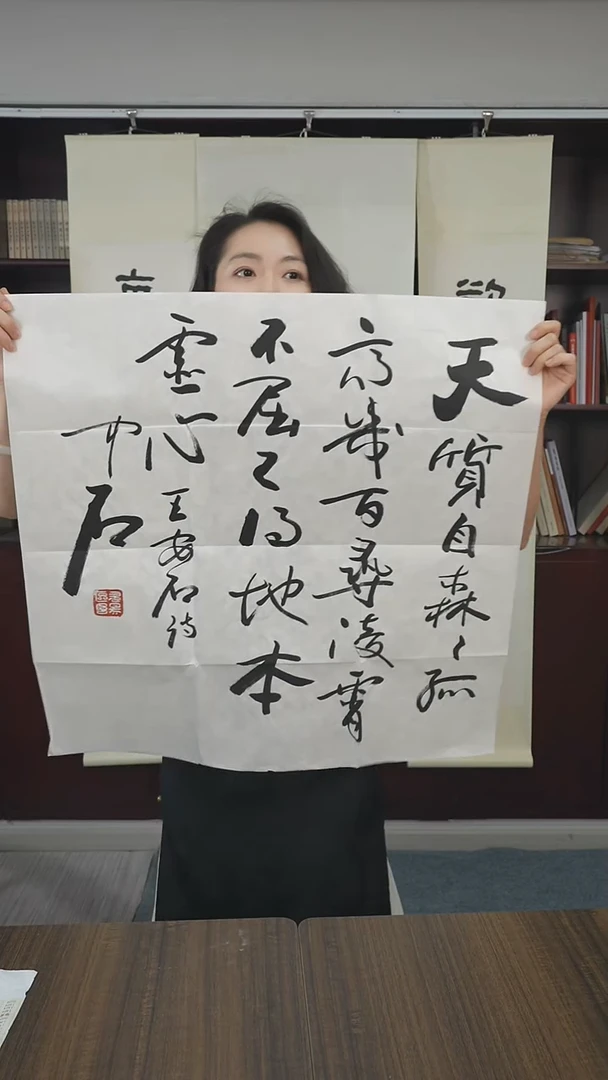 天質自森〻孤
高幾百尋凌霄
不屈己得地本
虛心 王安石詩
中石